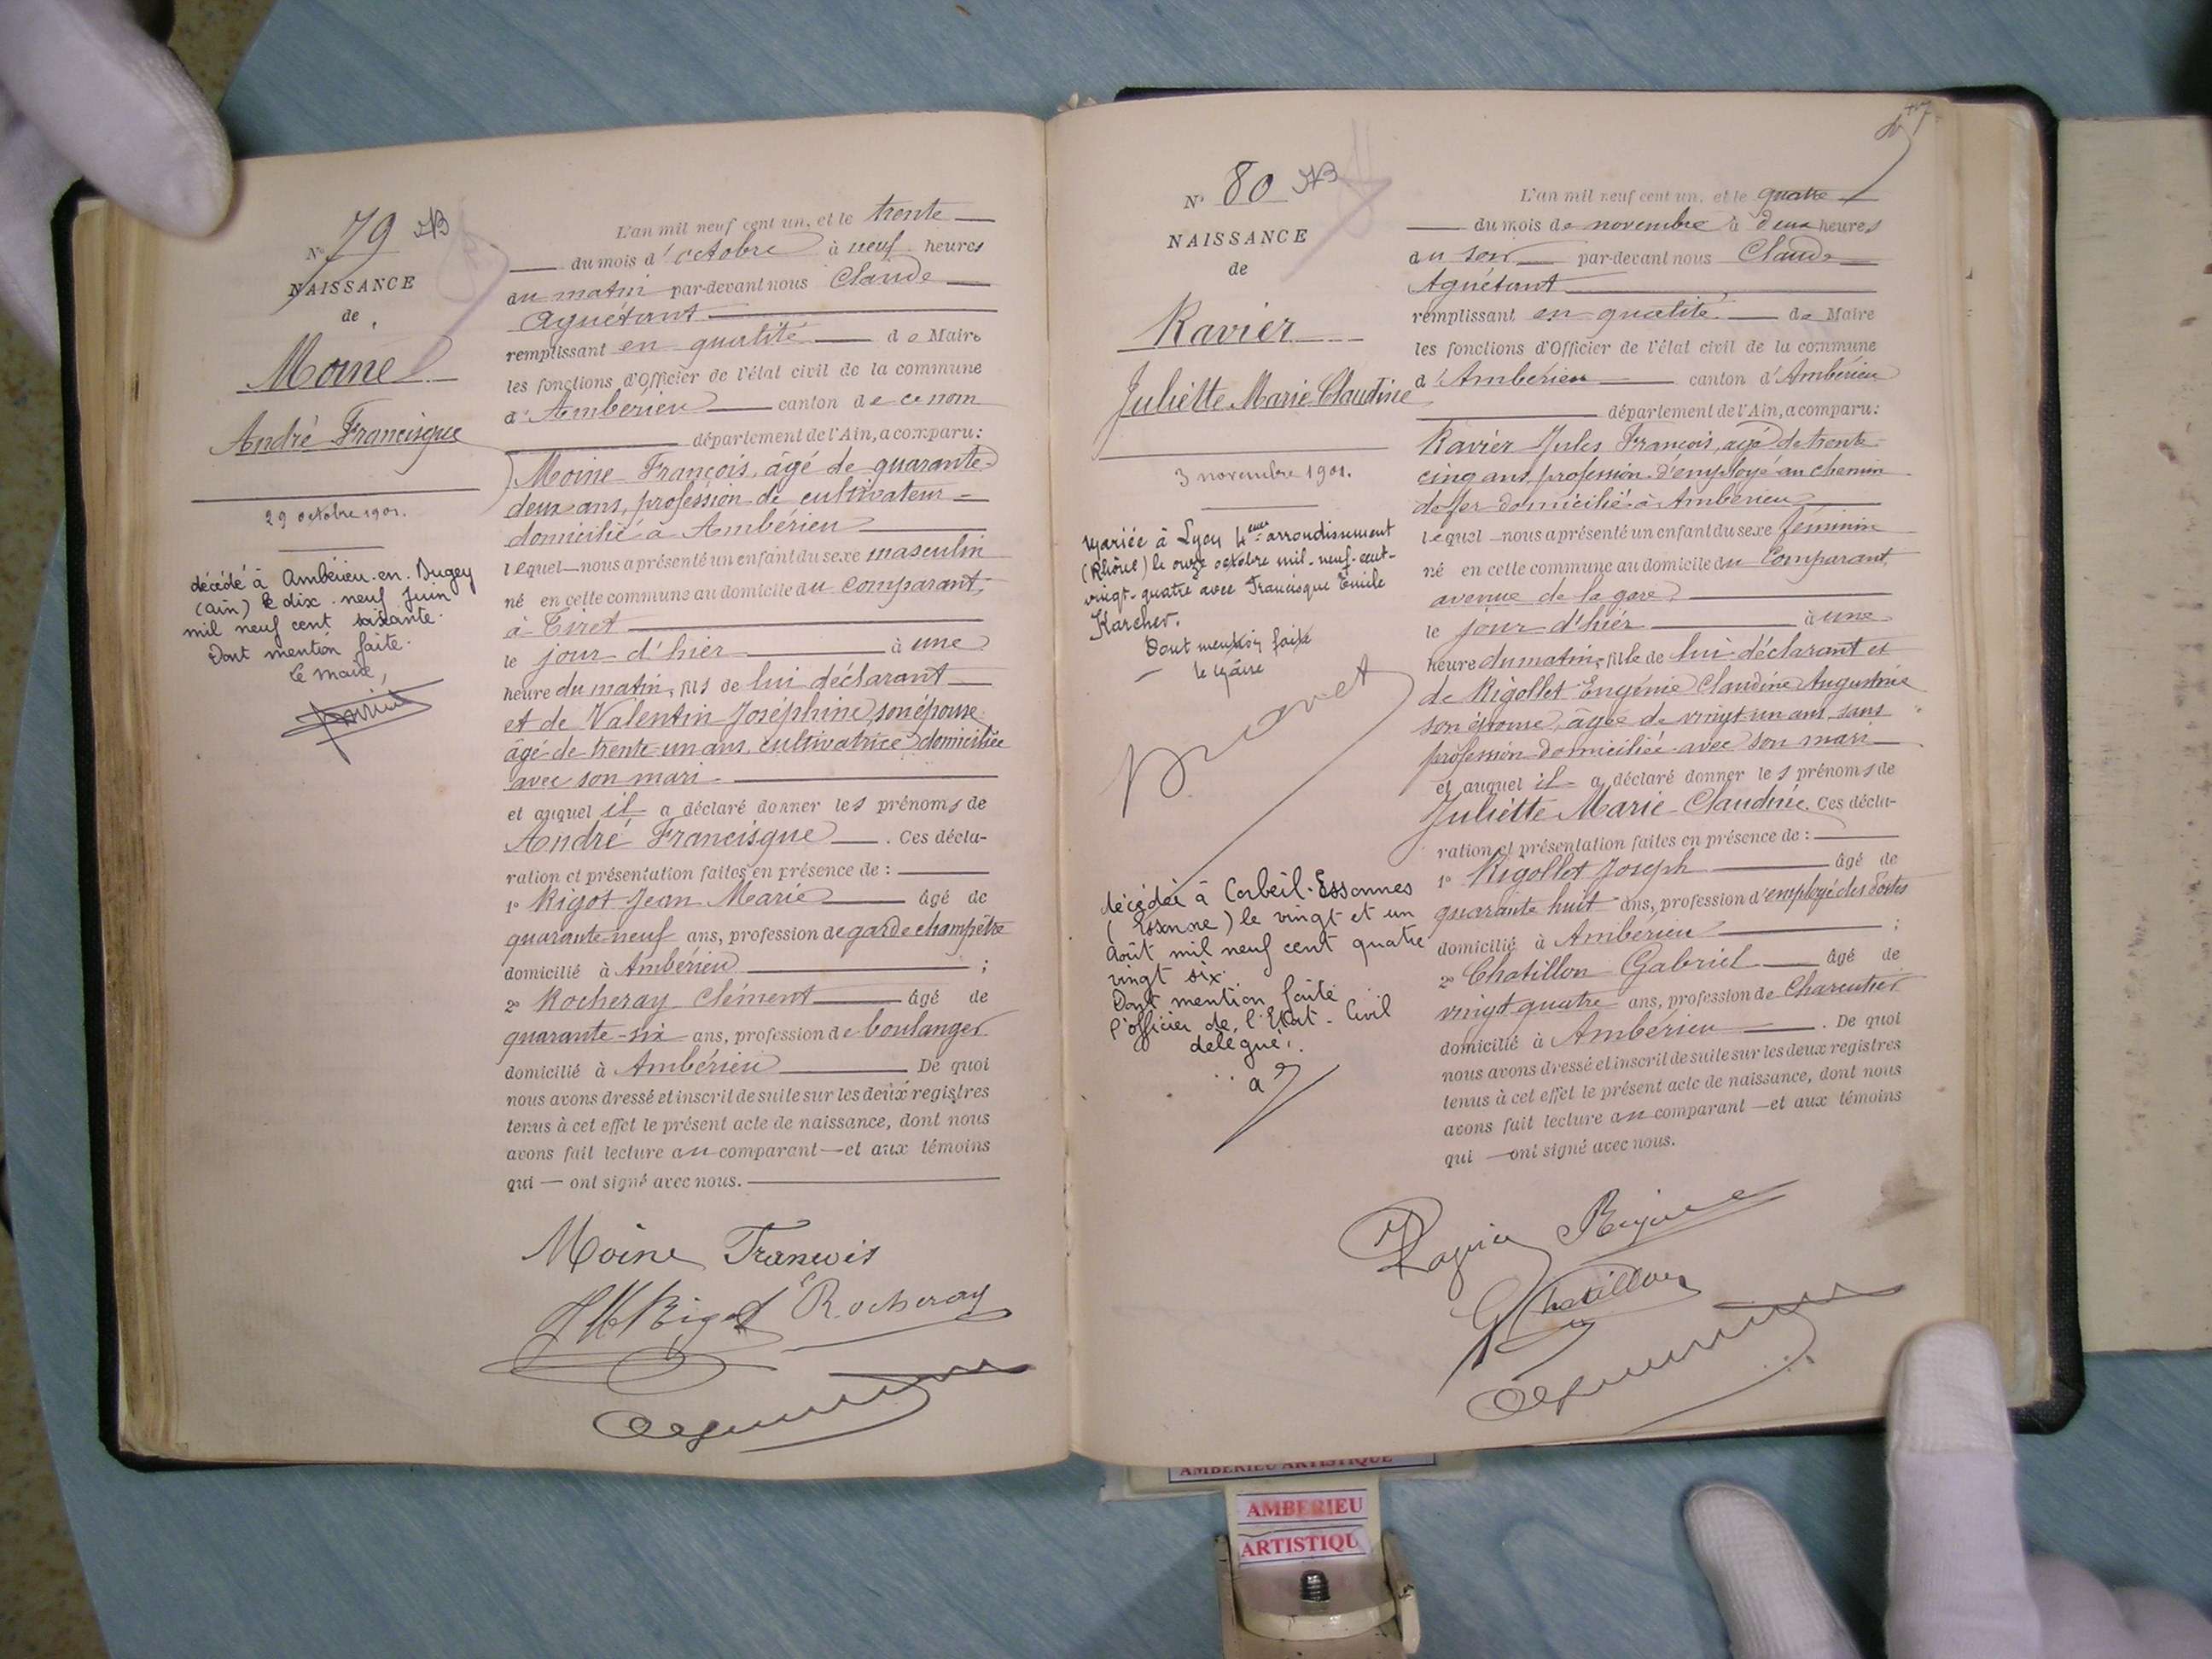 N° 79
NAISSANCE
de
Moine
André Francisque
29 octobre 1901.
décédé à Ambérieu-en-Bugey
(ain) le dix-neuf juin
mil neuf cent soixante.
Dont mention faite.
le maire,
L'an mil neuf cent un, et le trente
du mois d'octobre à neuf heures
du matin par-devant nous Claude
Aguétant
remplissant en qualité de Maire
les fonctions d'Officier de l'état civil de la commune
d'Ambérieu canton de ce nom
département de l'Ain, a comparu:
Moine François, âgé de quarante-
deux ans, profession de cultivateur
domicilié à Ambérieu
lequel nous a présenté un enfant du sexe masculin
né en cette commune au domicile du comparant,
à Tiret
le jour d'hier à une
heure du matin, fils de lui déclarant
et de Valentin Joséphine, son épouse
âgé de trente-un ans, cultivatrice domiciliée
avec son mari
et auquel il a déclaré donner les prénoms de
André Francisque. Ces décla-
ration et présentation faites en présence de :
1° Rigot Jean Marie âgé de
quarante-neuf ans, profession de garde champêtre
domicilié à Ambérieu ;
2° Rocheray Clément âgé de
quarante-six ans, profession de boulanger
domicilié à Ambérieu De quoi
nous avons dressé et inscrit de suite sur les deux registres
tenus à cet effet le présent acte de naissance, dont nous
avons fait lecture au comparant et aux témoins
qui ont signé avec nous.
Moine François
JM Rigot C Rocheray
47
N° 80
NAISSANCE
de
Ravier
Juliette Marie Claudine
3 novembre 1901.
Mariée à Lyon 4eme arrondissement
(Rhône) le onze octobre mil-neuf-cent-
vingt-quatre avec Francisque Emile
Karcher.
Dont mention faite
le Maire
décédée à Corbeil-Essonnes
(Essonne) le vingt et un
Août mil neuf cent quatre
vingt six.
Dont mention faite
l'officier de l'Etat-Civil
délégué.
L'an mil neuf cent un, et le quatre
du mois de novembre à deux heures
du soir par-devant nous Claude
Aguétant
remplissant en qualité de Maire
les fonctions d'Officier de l'état civil de la commune
d'Ambérieu canton d'Ambérieu
département de l'Ain, a comparu:
Ravier Jules François, âgé de trente-
cinq ans, profession d'employé au chemin
de fer domicilié à Ambérieu
lequel nous a présenté un enfant du sexe féminin
né en cette commune au domicile du Comparant,
avenue de la gare
le jour d'hier à une
heure du matin, fille de lui déclarant et
de Rigollet Eugénie Claudine Augustine
son épouse, âgée de vingt un ans, sans
profession domiciliée avec son mari
et auquel il a déclaré donner les prénoms de
Juliette Marie Claudine. Ces décla-
ration et présentation faites en présence de :
1° Rigollet Joseph âgé de
quarante huit ans, profession d'employé des Postes
domicilié à Ambérieu ;
2° Chatillon Gabriel âgé de
vingt quatre ans, profession de Charcutier
domicilié à Ambérieu. De quoi
nous avons dressé et inscrit de suite sur les deux registres
tenus à cet effet le présent acte de naissance, dont nous
avons fait lecture au comparant et aux témoins
qui ont signé avec nous.
G Chatillon
AMBERIEU ARTISTIQUE
AMBERIEU
ARTISTIQU